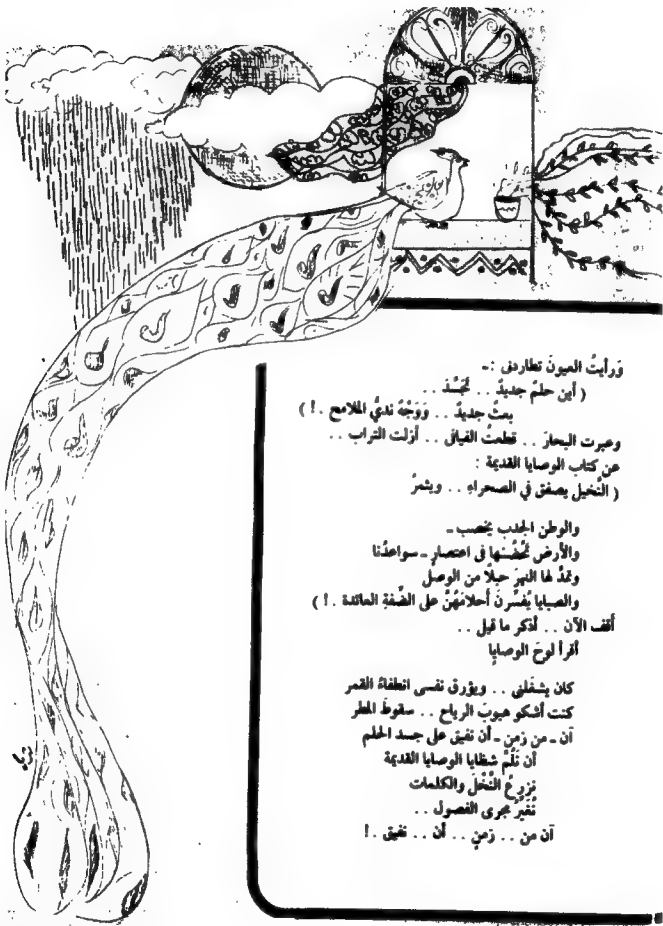 وَرأيتُ العيونَ تطاردنى :ـ
( أين حلمٌ جديدٌ . . تجَسَّد . .
بعثٌ جديدٌ . . وَوَجْهٌ نديُّ الملامحِ . ! )
وعبرت البحارَ . . قطعتُ الفيافى . . أزلت التراب . .
عن كتاب الوصايا القديمة :
( النَّخيل يصفق في الصحراءِ . . ويثمرُ
والوطن الجدب يخصب ـ
والأرض تحْضُنها فى اعتصارٍ ـ سواعدُنا
ونمدُّ لها النهرَ حبلًا من الوصلْ
والصبايا يُفسِّرنَ أحلامَهُنَّ على الضِّفةِ العائدة . ! )
أقف الآن . . أذكر ما قيل . .
أقرأ لوحَ الوصايا
كان يشغلنى . . ويؤرق نفسى انطفاءُ القمر
كنت أشكو هبوبَ الرياح . . سقوطَ المطر
آن ـ من زمنٍ ـ أن نفيق على جسد الحلم
أن نلُمَّ شظايا الوصايا القديمة
نزرعُ النَّخْلَ والكلمات
نُغَيِّرُ مجرى الفصول . .
آن من . . زمنٍ . . أن . . نفيق . !